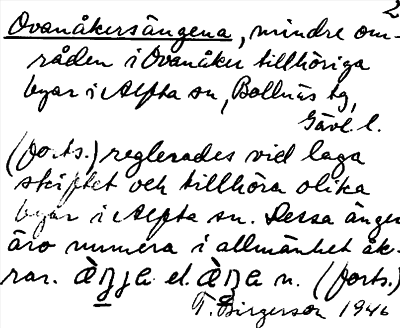 2
Ovanåkersängena, mindre om-
råden i Ovanåker tillhöriga
byar i Alfta sn, Bollnäs tg,
Gävl. l.
(forts.) reglerades vid laga
skiftet och tillhöra olika
byar i Alfta sn. Dessa ängar
äro numera i allmänhet åk-
rar. el. n. (forts.)
T. Birgerson 1946